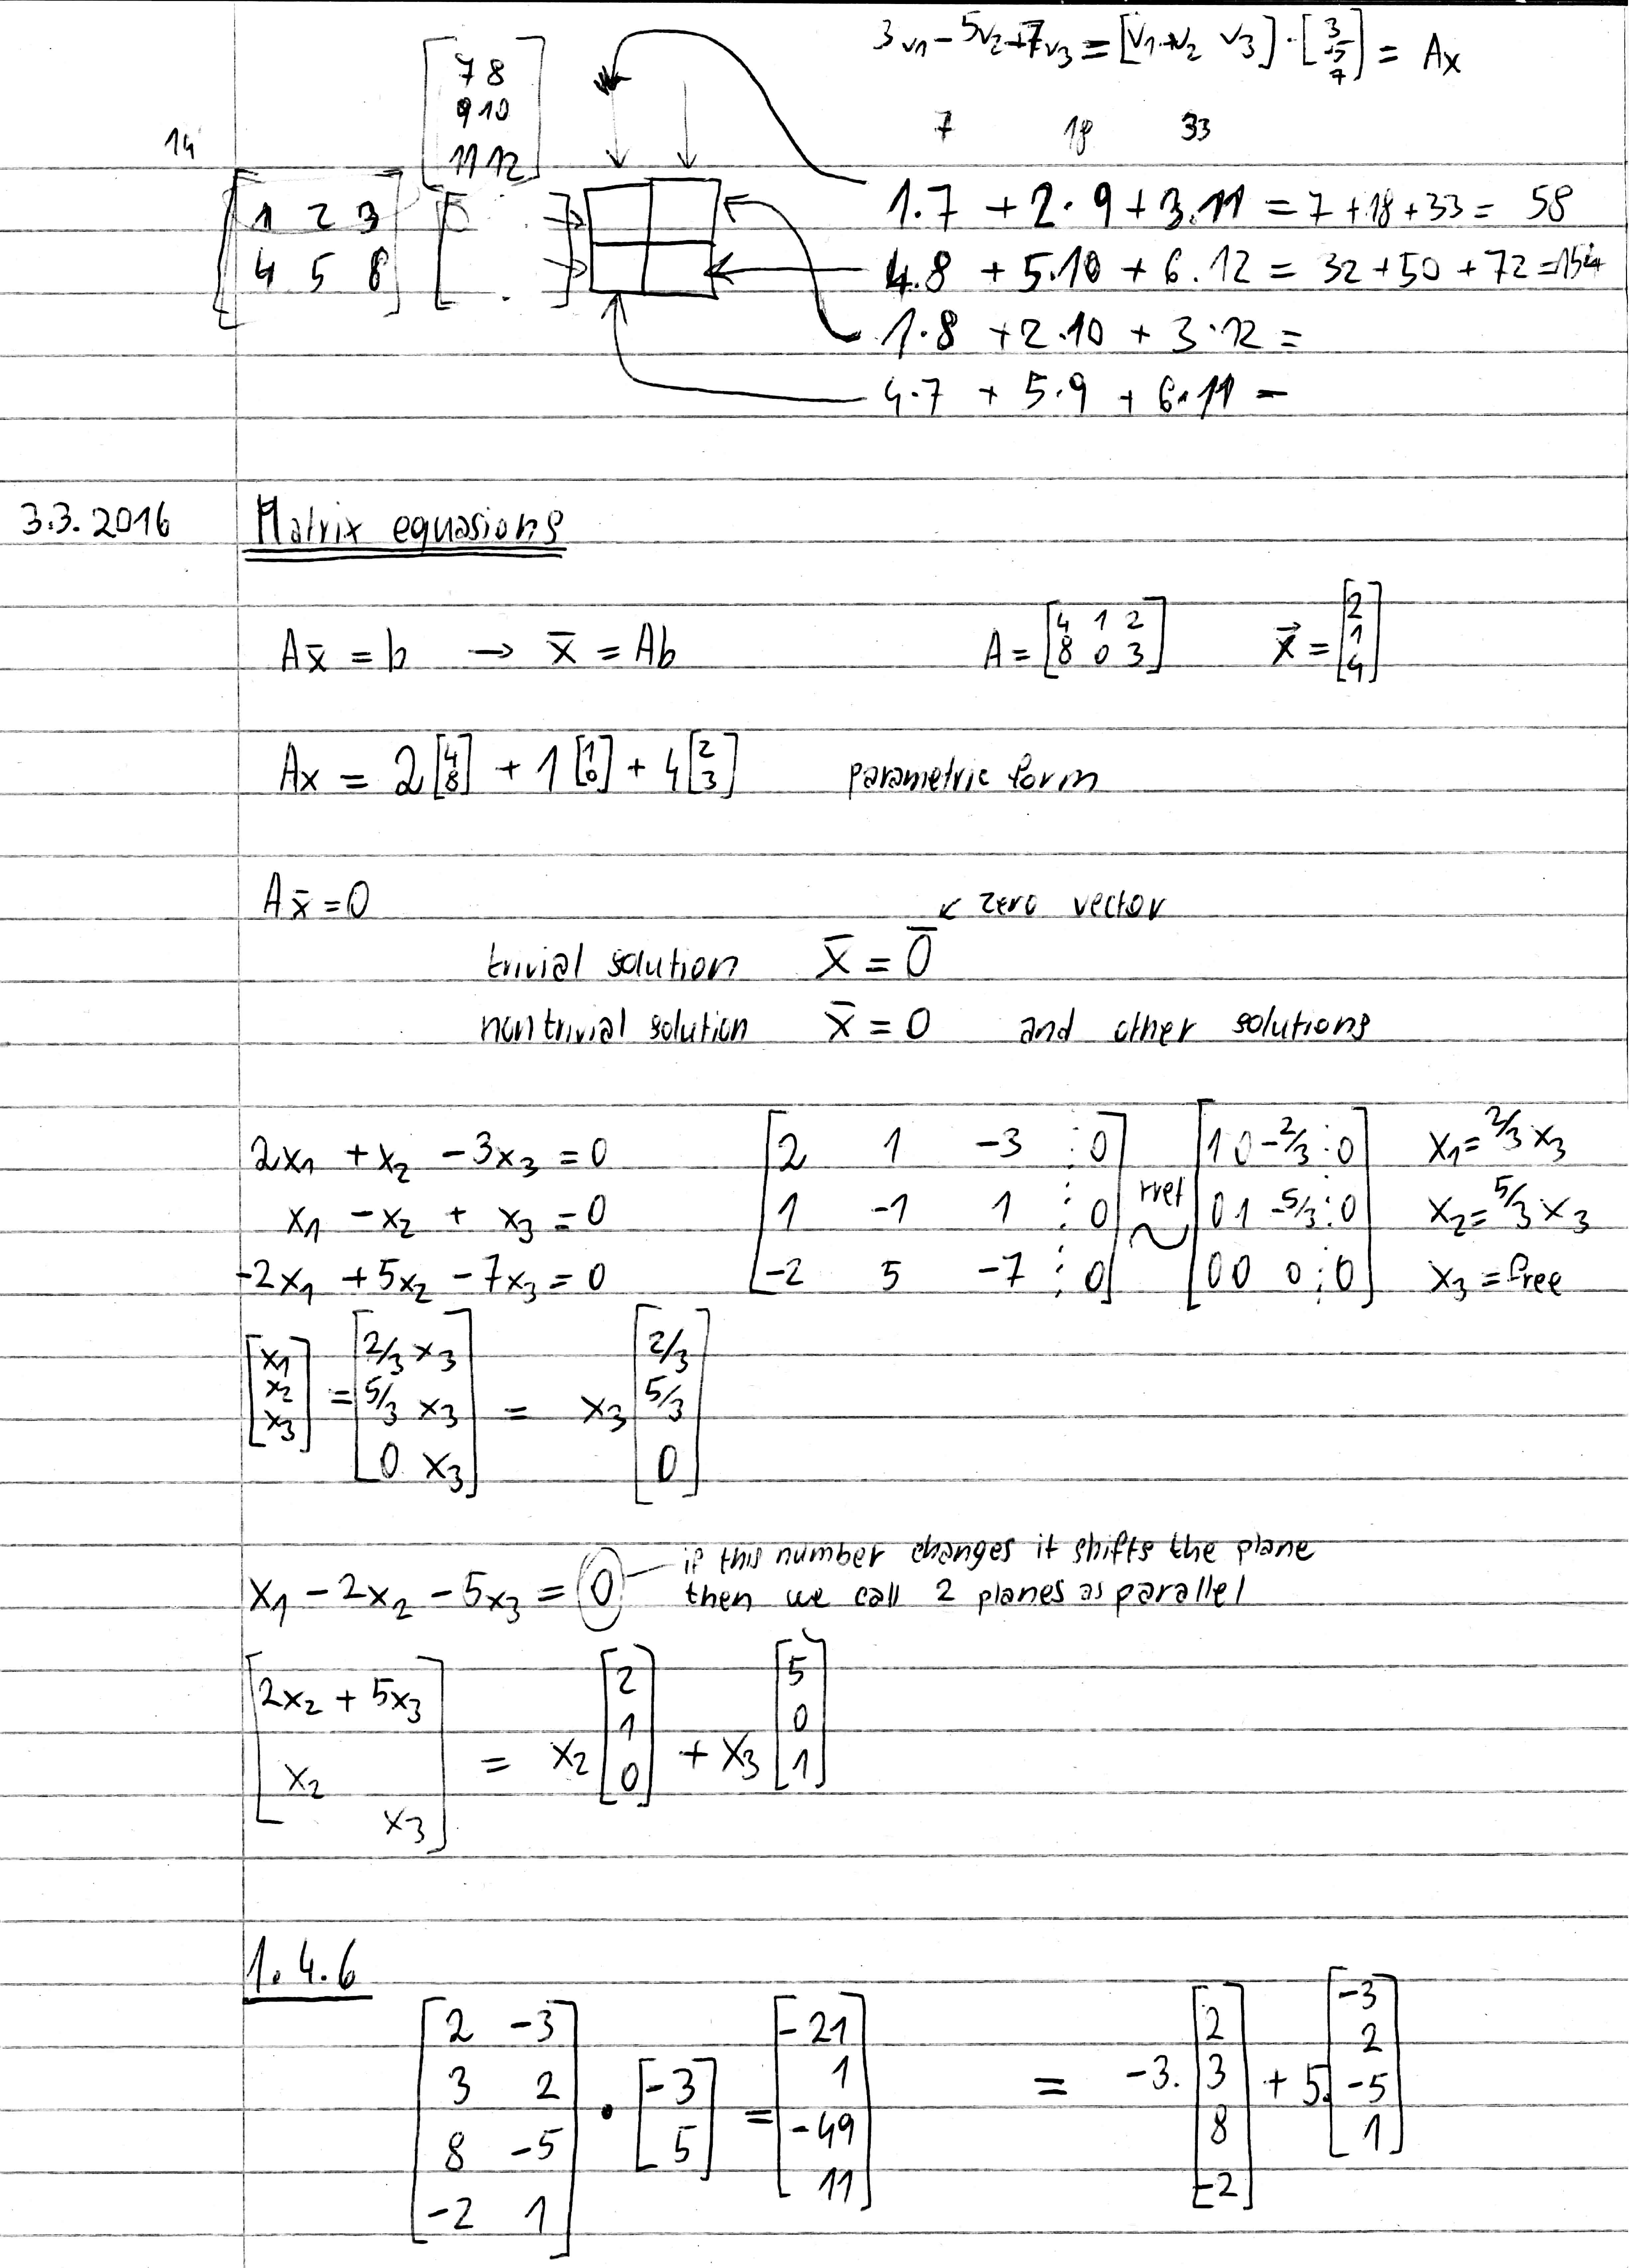 3v1 - 5v2 + 7v3 = [v1 v2 v3] · [3 -5 7] = Ax
7 8
9 10
11 12
7 18 33
14
1 2 3
4 5 8
1·7 + 2·9 + 3·11 = 7 + 18 + 33 = 58
4·8 + 5·10 + 6·12 = 32 + 50 + 72 = 154
1·8 + 2·10 + 3·12 =
4·7 + 5·9 + 6·11 =
3.3.2016 Matrix equasions
Ax̄ = b → x̄ = Ab A = [4 1 2; 8 0 3] x⃗ = [2; 1; 4]
Ax = 2[4; 8] + 1[1; 0] + 4[2; 3] parametric form
Ax̄ = 0
↙ zero vector
trivial solution x̄ = 0̄
nontrivial solution x̄ = 0 and other solutions
2x1 + x2 - 3x3 = 0 [2 1 -3 ⋮ 0] rref ~ [1 0 -2/3 ⋮ 0] x1 = 2/3 x3
x1 - x2 + x3 = 0 [1 -1 1 ⋮ 0] [0 1 -5/3 ⋮ 0] x2 = 5/3 x3
-2x1 + 5x2 - 7x3 = 0 [-2 5 -7 ⋮ 0] [0 0 0 ⋮ 0] x3 = free
[x1; x2; x3] = [2/3 x3; 5/3 x3; 0 x3] = x3 [2/3; 5/3; 0]
if this number changes it shifts the plane
x1 - 2x2 - 5x3 = 0 then we call 2 planes as parallel
[2x2 + 5x3; x2; x3] = x2 [2; 1; 0] + x3 [5; 0; 1]
1.4.6
[2 -3; 3 2; 8 -5; -2 1] · [-3; 5] = [-21; 1; -49; 11] = -3·[2; 3; 8; -2] + 5·[-3; 2; -5; 1]